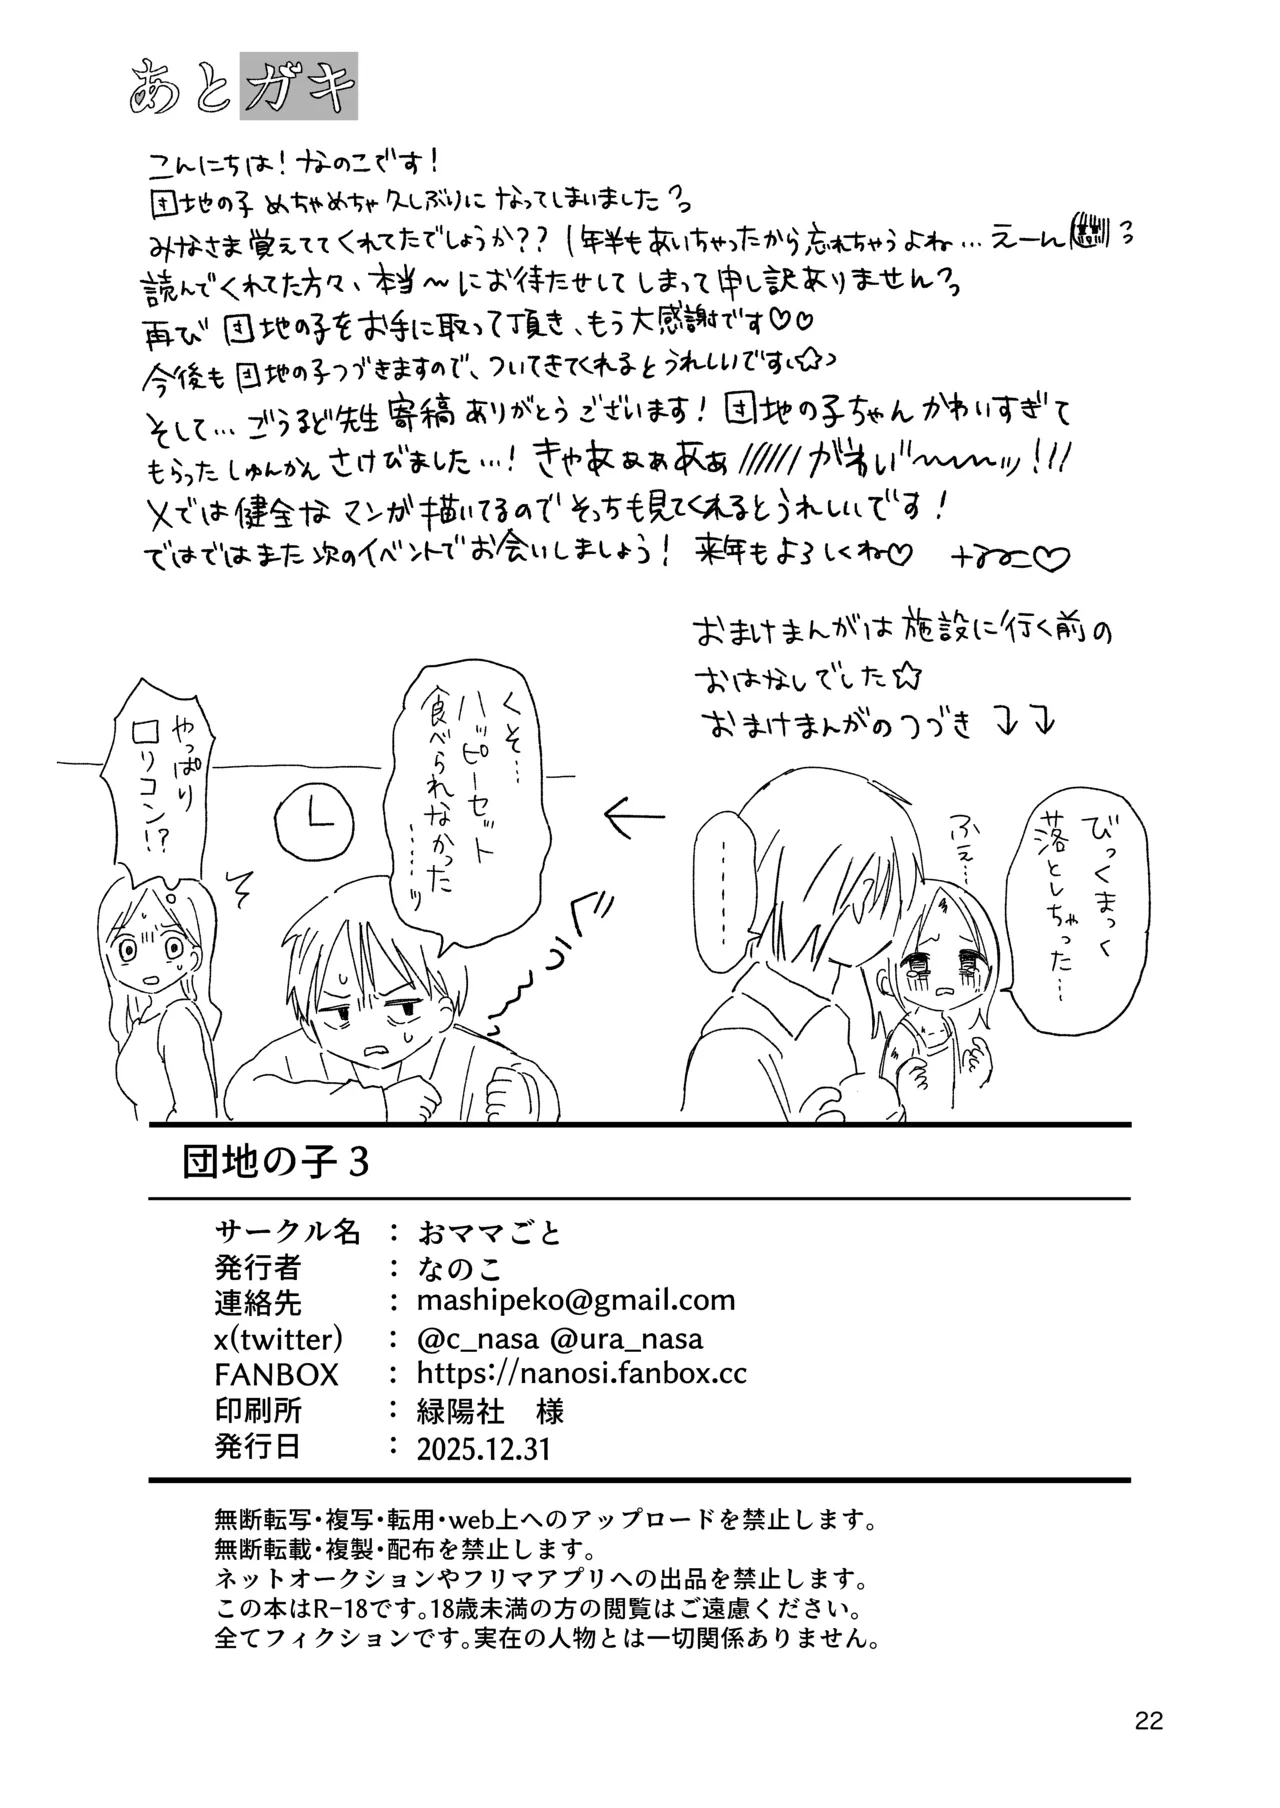 あとガキ
こんにちは！なのこです！
団地の子 めちゃめちゃ久しぶりになってしまいました
みなさま覚えててくれてたでしょうか？？1年半もあいちゃったから忘れちゃうよね…えーん
読んでくれてた方々、本当〜にお待たせしてしまって申し訳ありません
再び団地の子をお手に取って頂き、もう大感謝です♡♡
今後も団地の子つづきますので、ついてきてくれるとうれしいです☆
そして…ごうるど先生 寄稿ありがとうございます！団地の子ちゃんかわいすぎて
もらったしゅんかんさけびました…！きゃあぁぁあぁ//////がわい゛〜〜〜ッ!!!
Xでは健全なマンガ描いてるのでそっちも見てくれるとうれしいです！
ではではまた次のイベントでお会いしましょう！来年もよろしくね♡ なのこ♡
おまけまんがは施設に行く前の
おはなしでした☆
おまけまんがのつづき ↓↓
びっくまっく
落としちゃった…
ふぇ…
………
くそ…
ハッピーセット
食べられなかった
……ッ
やっぱり
ロリコン!?
団地の子 3
サークル名 ： おママごと
発行者 ： なのこ
連絡先 ： mashipeko@gmail.com
x(twitter) ： @c_nasa @ura_nasa
FANBOX ： https://nanosi.fanbox.cc
印刷所 ： 緑陽社　様
発行日 ： 2025.12.31
無断転写・複写・転用・web上へのアップロードを禁止します。
無断転載・複製・配布を禁止します。
ネットオークションやフリマアプリへの出品を禁止します。
この本はR-18です。18歳未満の方の閲覧はご遠慮ください。
全てフィクションです。実在の人物とは一切関係ありません。
22